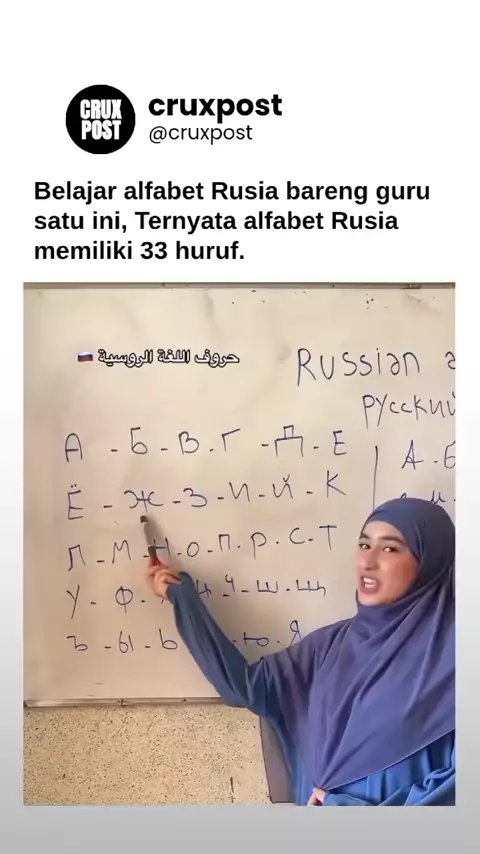 CRUX
POST
cruxpost
@cruxpost
Belajar alfabet Rusia bareng guru
satu ini, Ternyata alfabet Rusia
memiliki 33 huruf.
حروف اللغة الروسية 🇷🇺
Russian a
русский
А - Б - В - Г - Д - Е
Ё - Ж - З - И - Й - К
Л - М - Н - О - П - Р - С - Т
У - Ф - Ц - Ч - Ш - Щ
Ъ - Ы - Ь - Ю - Я
А - Б